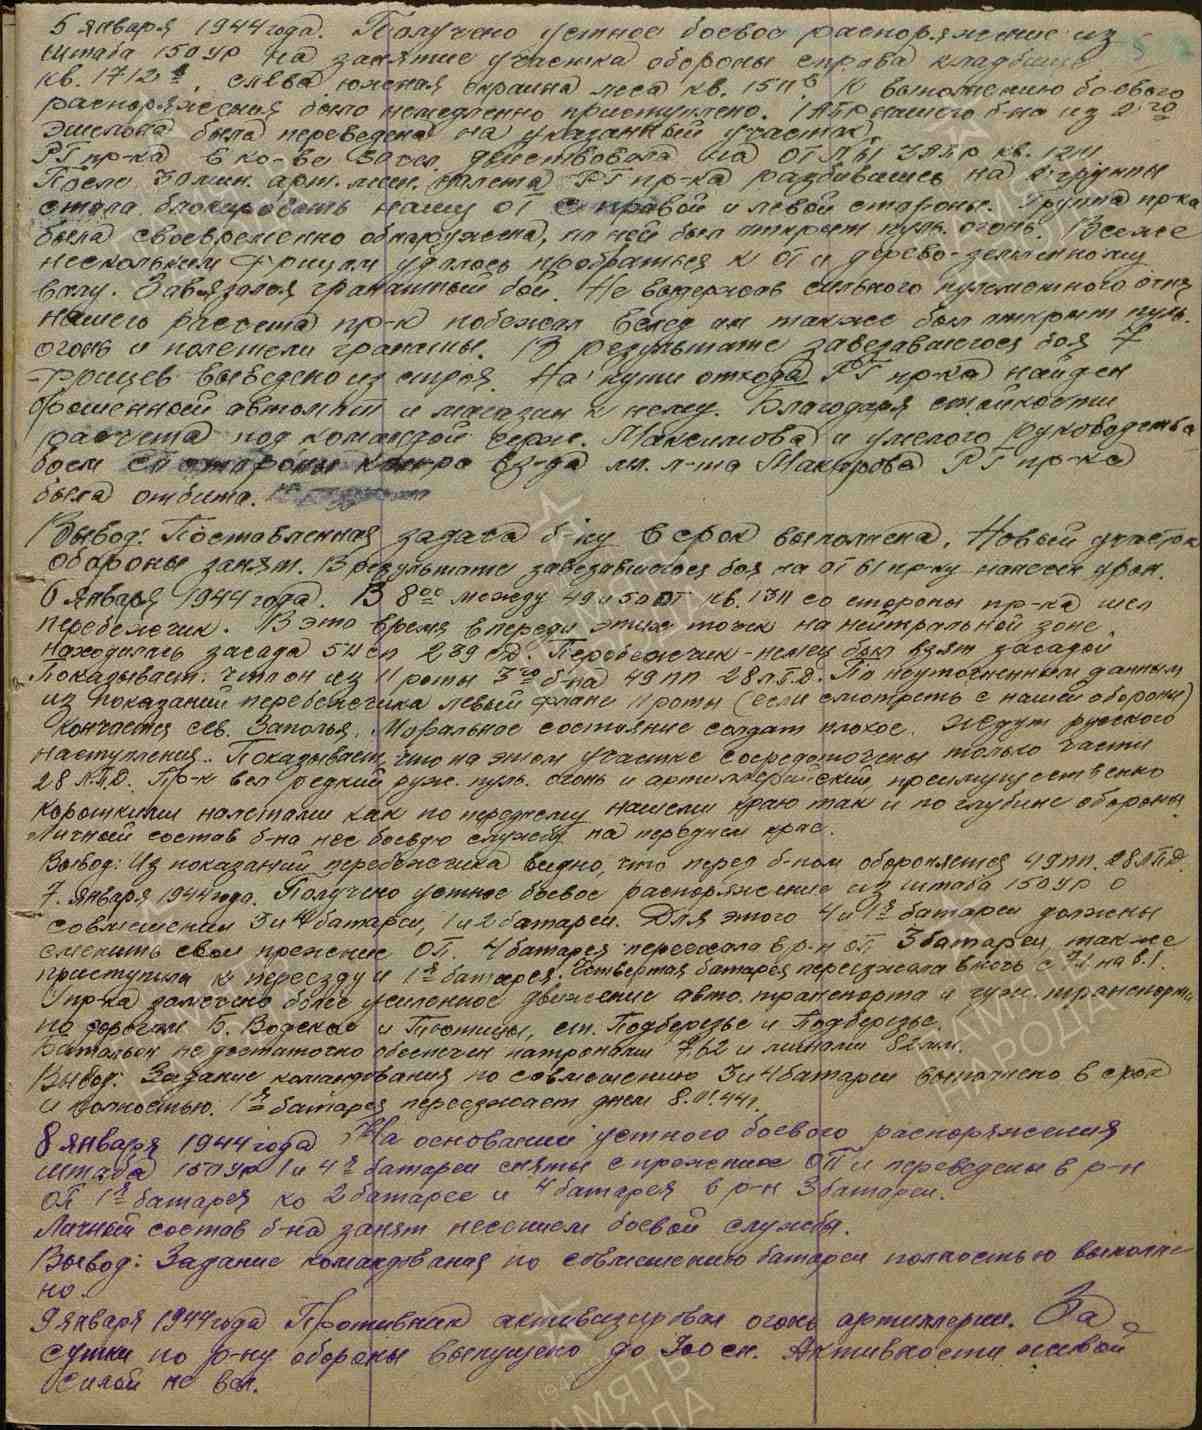 5 января 1944 года. Получено устное боевое распоряжение из
штаба 150 УР на занятие участка обороны справа кладбище
кв. 1712, слева южная окраина леса кв. 1511 К выполнению боевого
распоряжения было немедленно приступлено. 1 АПБр нашего б-на из 2го
эшелона была переведена на указанный участок.
РГ пр-ка в ко-ве чел. действовала на ОТ № 61 кв. 1211
После 30 мин. арт. мин. налета РГ пр-ка разбившись на 2 группы
стала блокировать нашу ОТ с правой и левой стороны. Группа пр-ка
была своевременно обнаружена, по ней был открыт пул. огонь. Все же
нескольким фрицам удалось пробраться к ОТ и дерево-земляному
валу. Завязался гранатный бой. Не выдержав сильного пулеметного огня
нашего расчета пр-к побежал вслед им также был открыт пул.
огонь и полетели гранаты. В результате завязавшегося боя 7
фрицев выведено из строя. На пути отхода РГ пр-ка найден
брошенной автомат и магазин к нему. Благодаря стойкости
расчета под командой серж. Максимова и умелого руководства
боем со стороны ком-ра вз-да мл. л-та Макарова РГ пр-ка
была отбита.
Вывод: Поставленная задача б-ну в срок выполнена. Новый участок
обороны занят. В результате завязавшегося боя на ОТ 61 пр-ку нанесен урон.
6 января 1944 года. В 8 00 между 49 и 50 ОТ кв. 1311 со стороны пр-ка шел
перебежчик. В это время впереди этих точек на нейтральной зоне
находилась засада 5 сп 239 сд. Перебежчик-немец был взят засадой
Показывает: что он из 11 роты 3го б-на 49 ПП 28 ЛПД. По неуточненным данным
из показаний перебежчика левый фланг 11 роты (если смотреть с нашей обороны)
кончается сев. Заполья. Моральное состояние солдат плохое. Ждут русского
наступления. Показывает, что на этом участке сосредоточены только части
28 ЛПД. Пр-к вел редкий руж. пул. огонь и артиллерийский, преимущественно
короткими налетами как по переднему нашему краю так и по глубине обороны.
Личный состав б-на нес боевую службу на переднем крае.
Вывод: Из показаний перебежчика видно, что перед б-ном обороняется 49 ПП. 28 ЛПД.
7. января 1944 года. Получено устное боевое распоряжение из штаба 150 УР о
совмещении 3 и 4 батареи, 1 и 2 батареи. Для этого 4 и 1я батареи должны
сменить свои прежние ОП. 4 батарея переехала в р-н ОП 3 батареи, также
приступила к переезду и 1я батарея. Четвертая батарея переезжала в ночь с 7.1 на 8.1.
У пр-ка замечено более усиленное движение авто. транспорта и гуж. транспорта
по дорогам Б. Водское и Тютицы, ст. Подберезье и Подберезье.
Батальон не достаточно обеспечен патронами 7,62 и минами 82 мм.
Вывод: Задание командования по совмещению 3 и 4 батареи выполнено в срок
и полностью. 1я батарея переезжает днем 8.01.44 г.
8 января 1944 года На основании устного боевого распоряжения
штаба 150 УР 1 и 4я батареи сняты с прежних ОП и переведены в р-н
ОП 1я батарея ко 2 батарее и 4 батарея в р-н 3 батареи.
Личный состав б-на занят несением боевой службы.
Вывод: Задание командования по совмещению батареи полностью выполне-
но.
9 января 1944 года Противник активизировал огонь артиллерии. За
сутки по р-ну обороны выпущено до сн. Активности живой
силой не вел.